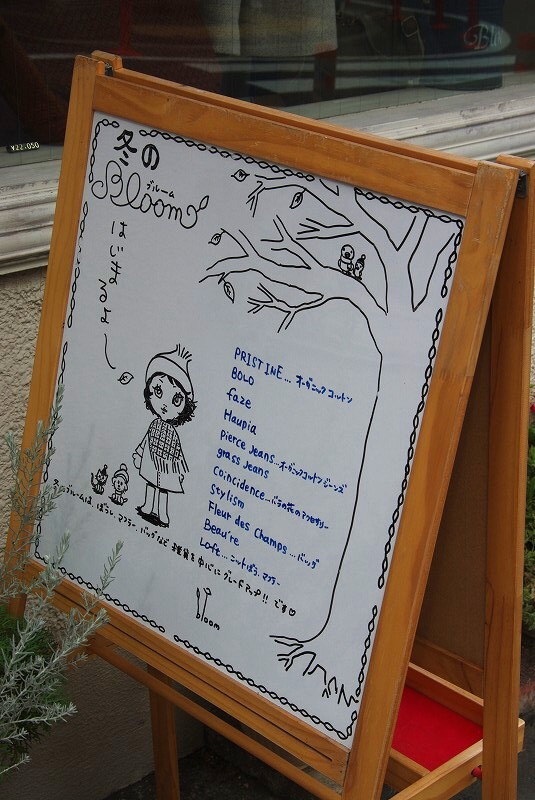 ¥22,050
冬の
ブルーム
Bloom
はじまるよー
PRISTINE... オーガニックコットン
BOLO
faze
Haupia
Pierce Jeans...オーガニックコットンジーンズ
grass Jeans
coincidence...バラの花のアクセサリー
Stylism
Fleur des Champs...バッグ
Beau're
Loft...ニットぼう、マフラー
冬のブルームは、ぼうし、マフラー、バッグなど雑貨を中心にグレードアップ!!です♡
bloom